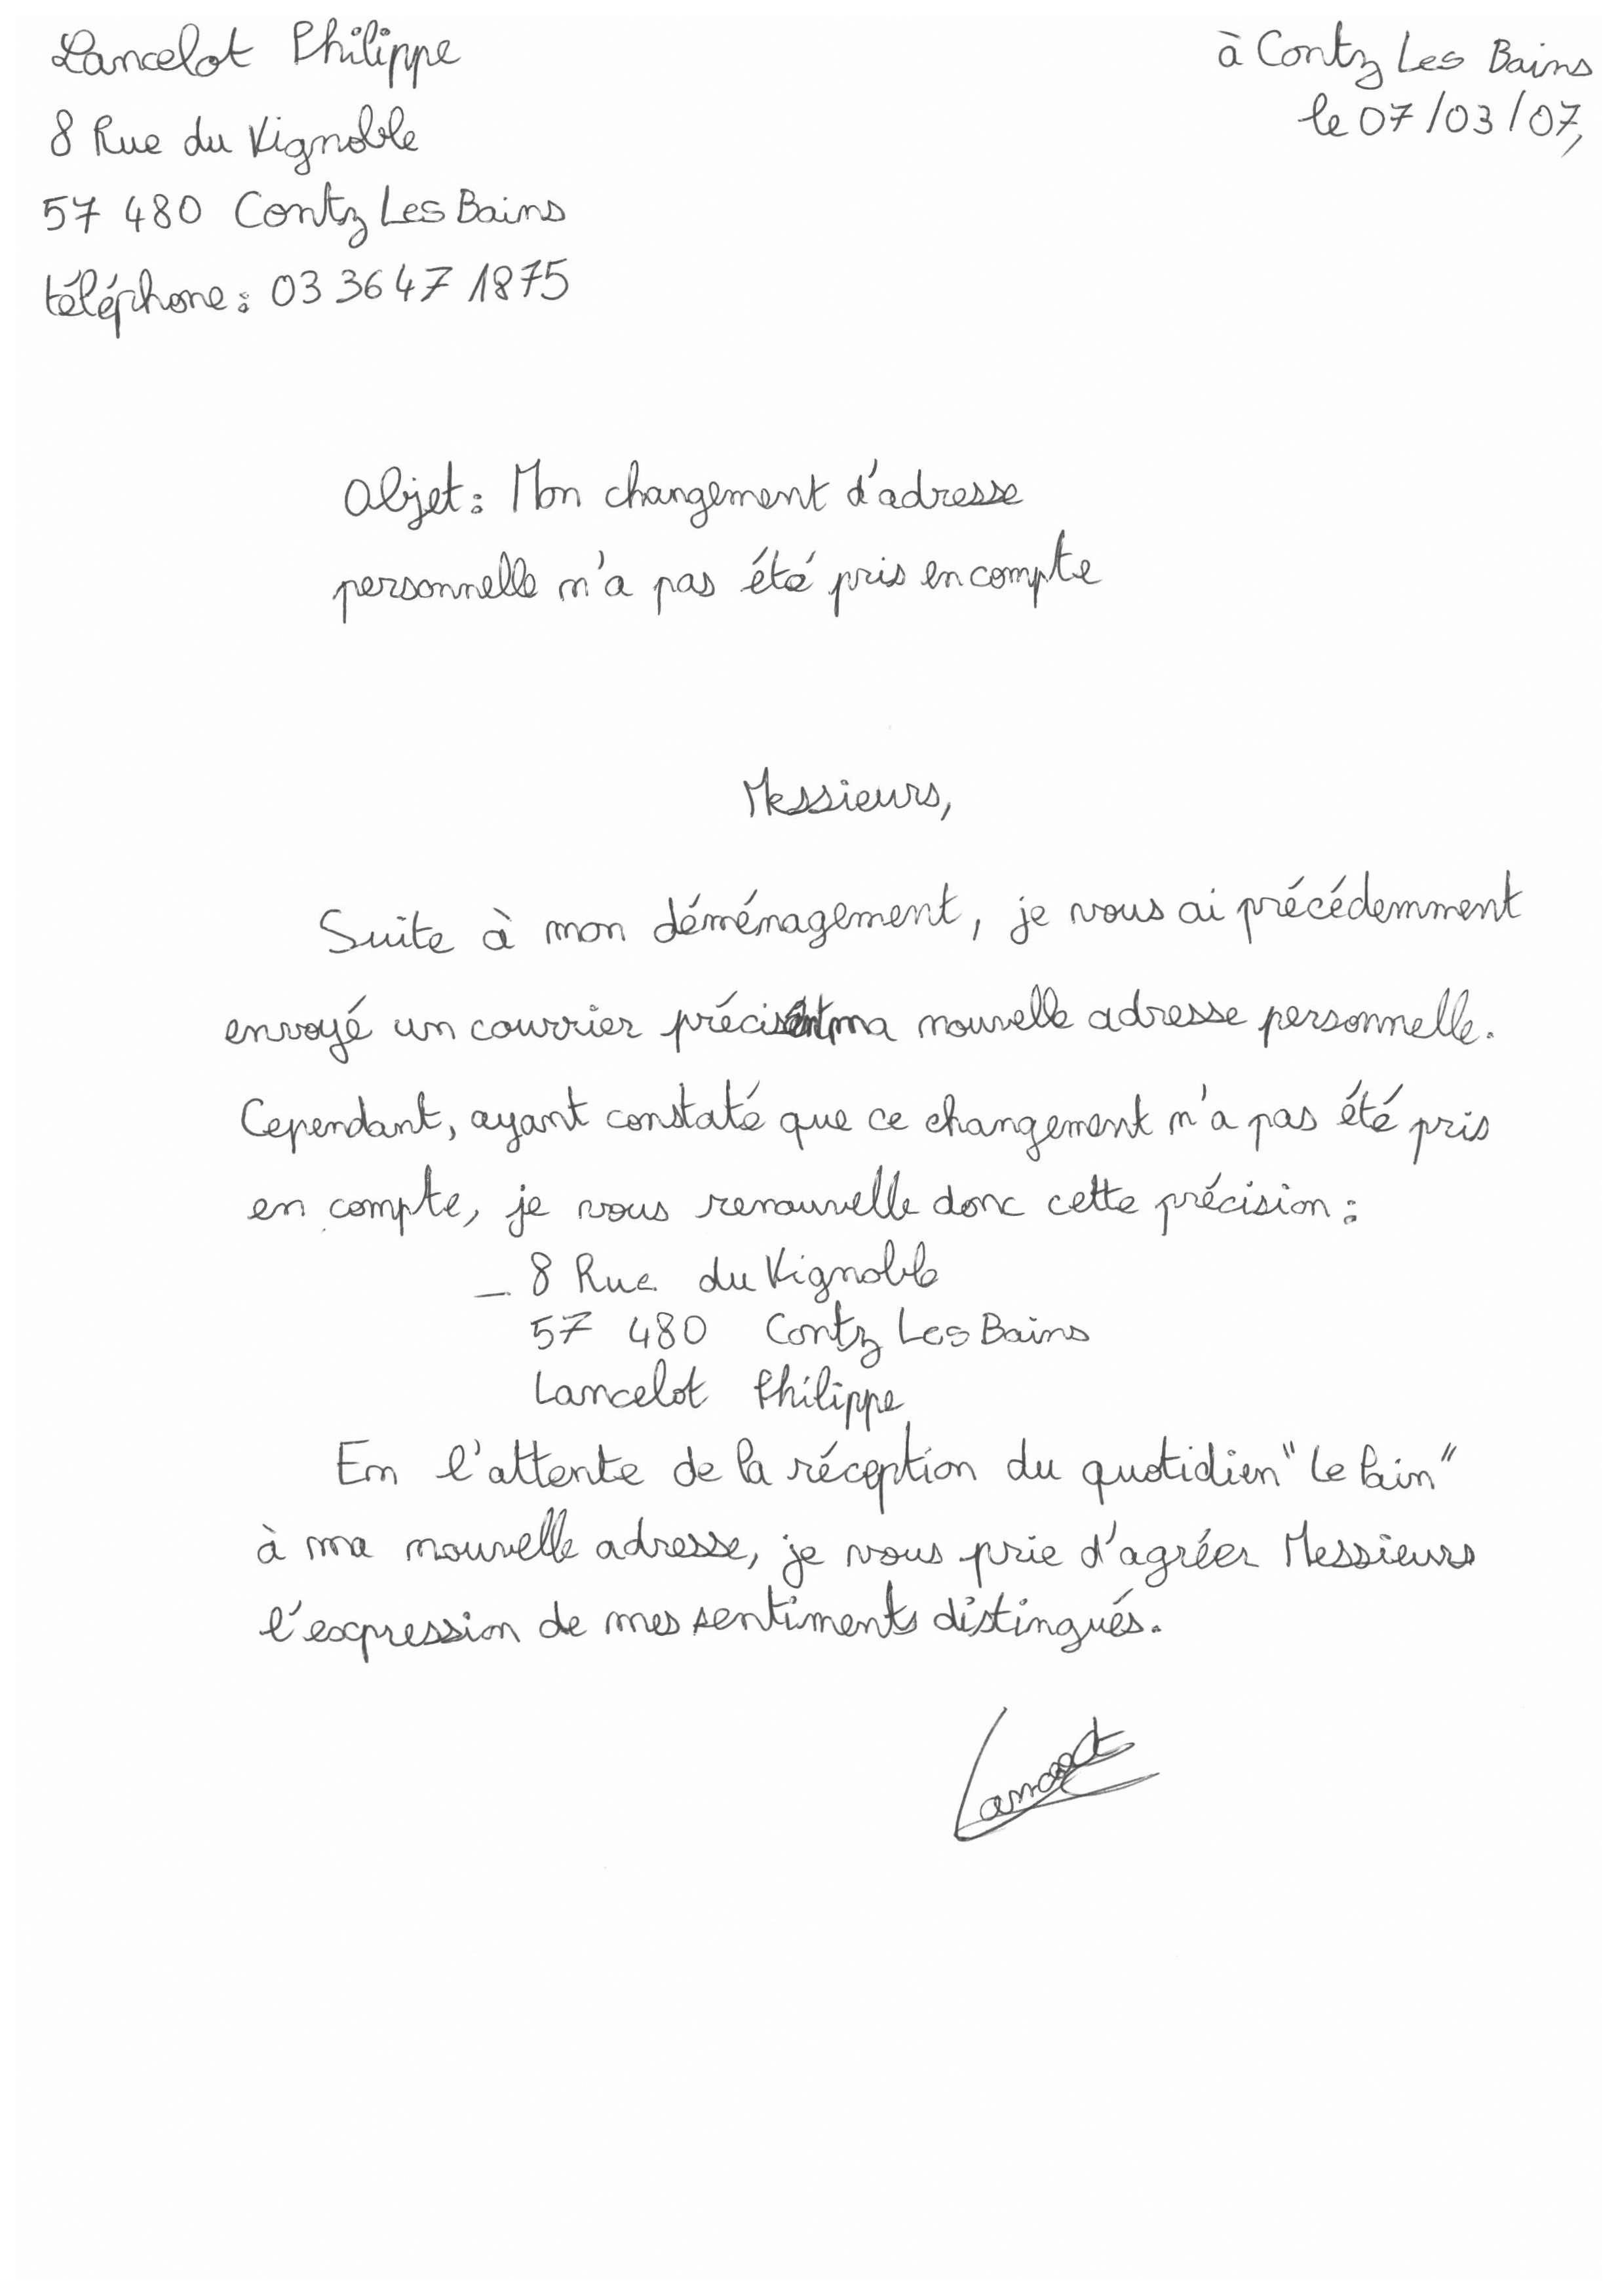 Lancelot Philippe
à Contz Les Bains
8 Rue du Vignoble
le 07/03/07,
57 480 Contz Les Bains
téléphone : 03 36 47 1875
Objet : Mon changement d'adresse
personnelle n'a pas été pris en compte
Messieurs,
Suite à mon déménagement, je vous ai précédemment
envoyé un courrier précisant ma nouvelle adresse personnelle.
Cependant, ayant constaté que ce changement n'a pas été pris
en compte, je vous renouvelle donc cette précision :
_ 8 Rue du Vignoble
57 480 Contz Les Bains
Lancelot Philippe
En l'attente de la réception du quotidien "Le Pain"
à ma nouvelle adresse, je vous prie d'agréer Messieurs
l'expression de mes sentiments distingués.
Lancelot